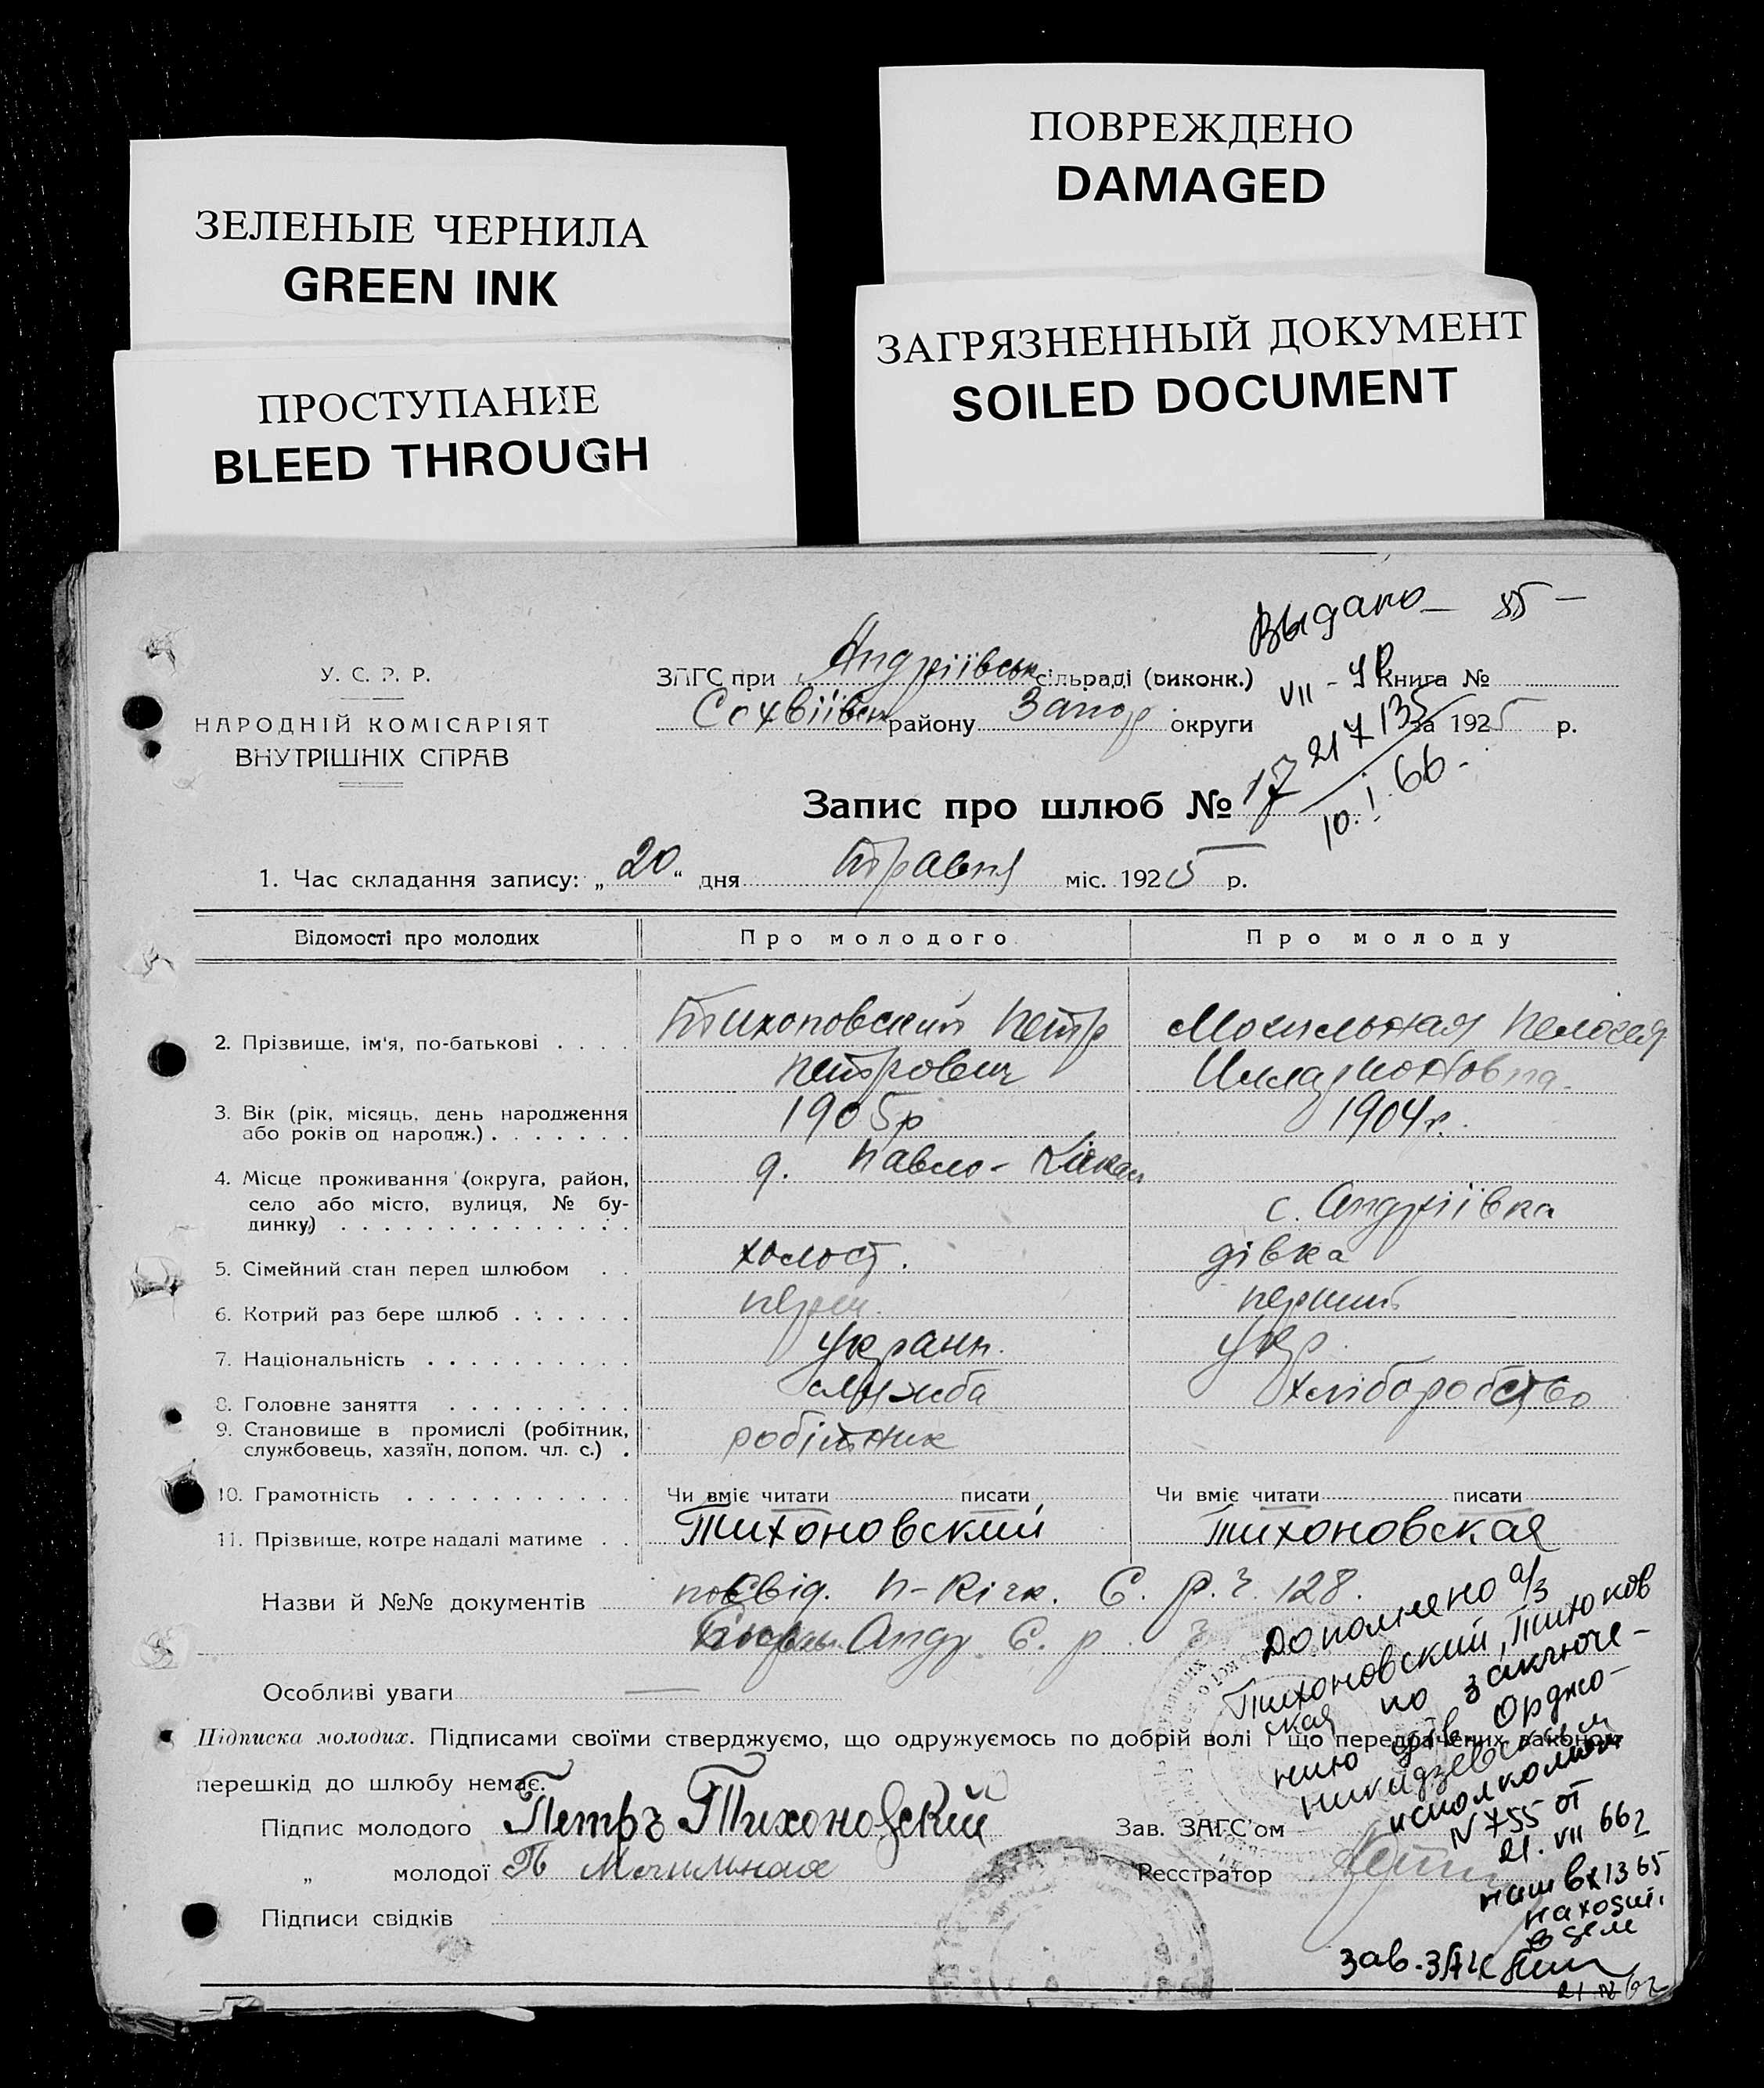 ПОВРЕЖДЕНО
DAMAGED
ЗЕЛЕНЫЕ ЧЕРНИЛА
GREEN INK
ЗАГРЯЗНЕННЫЙ ДОКУМЕНТ
SOILED DOCUMENT
ПРОСТУПАНИЕ
BLEED THROUGH
Выдано
VII - ЯР
217135
10.I.66.
У. С. Р. Р.
НАРОДНІЙ КОМІСАРІЯТ
ВНУТРІШНІХ СПРАВ
ЗАГС при Андріївськ сільраді (виконк.) Книга №
Софіївськ району Запор округи за 1925 р.
Запис про шлюб № 17
1. Час складання запису: „20“ дня травня міс. 1925 р.
Відомості про молодих Про молодого Про молоду
2. Прізвище, ім'я, по-батькові Тихоновский Петр Могильная Пелагея
Петрович
3. Вік (рік, місяць, день народження або років од народж.) 1905р 1904г.
4. Місце проживання (округа, район, село або місто, вулиця, № будинку) Павло- с. Андріївка
5. Сімейний стан перед шлюбом холост. дівка
6. Котрий раз бере шлюб перш. перший
7. Національність україн. укр.
8. Головне заняття служба хліборобство
9. Становище в промислі (робітник, службовець, хазяїн, допом. чл. с.) робітник
10. Грамотність Чи вміє читати писати Чи вміє читати писати
11. Прізвище, котре надалі матиме Тихоновский Тихоновская
Назви й №№ документів посвід. П-Кічк. С. р. г. 128.
Анду С. р
Особливі уваги —
Підписка молодих. Підписами своїми стверджуємо, що одружуємось по добрій волі і що передбачених законом
перешкід до шлюбу немає.
Підпис молодого Петръ Тихоновскій Зав. ЗАГС'ом
„ молодої П Могильная Реєстратор
Підписи свідків
Дополнено а/з
Тихоновский, Тихонов
ская по заключе-
нию отв. Орджо-
никидзевским
исполкомом
N 755 от
21. VII 66г
наш вх 1365
находит.
в деле
Зав. ЗАГС